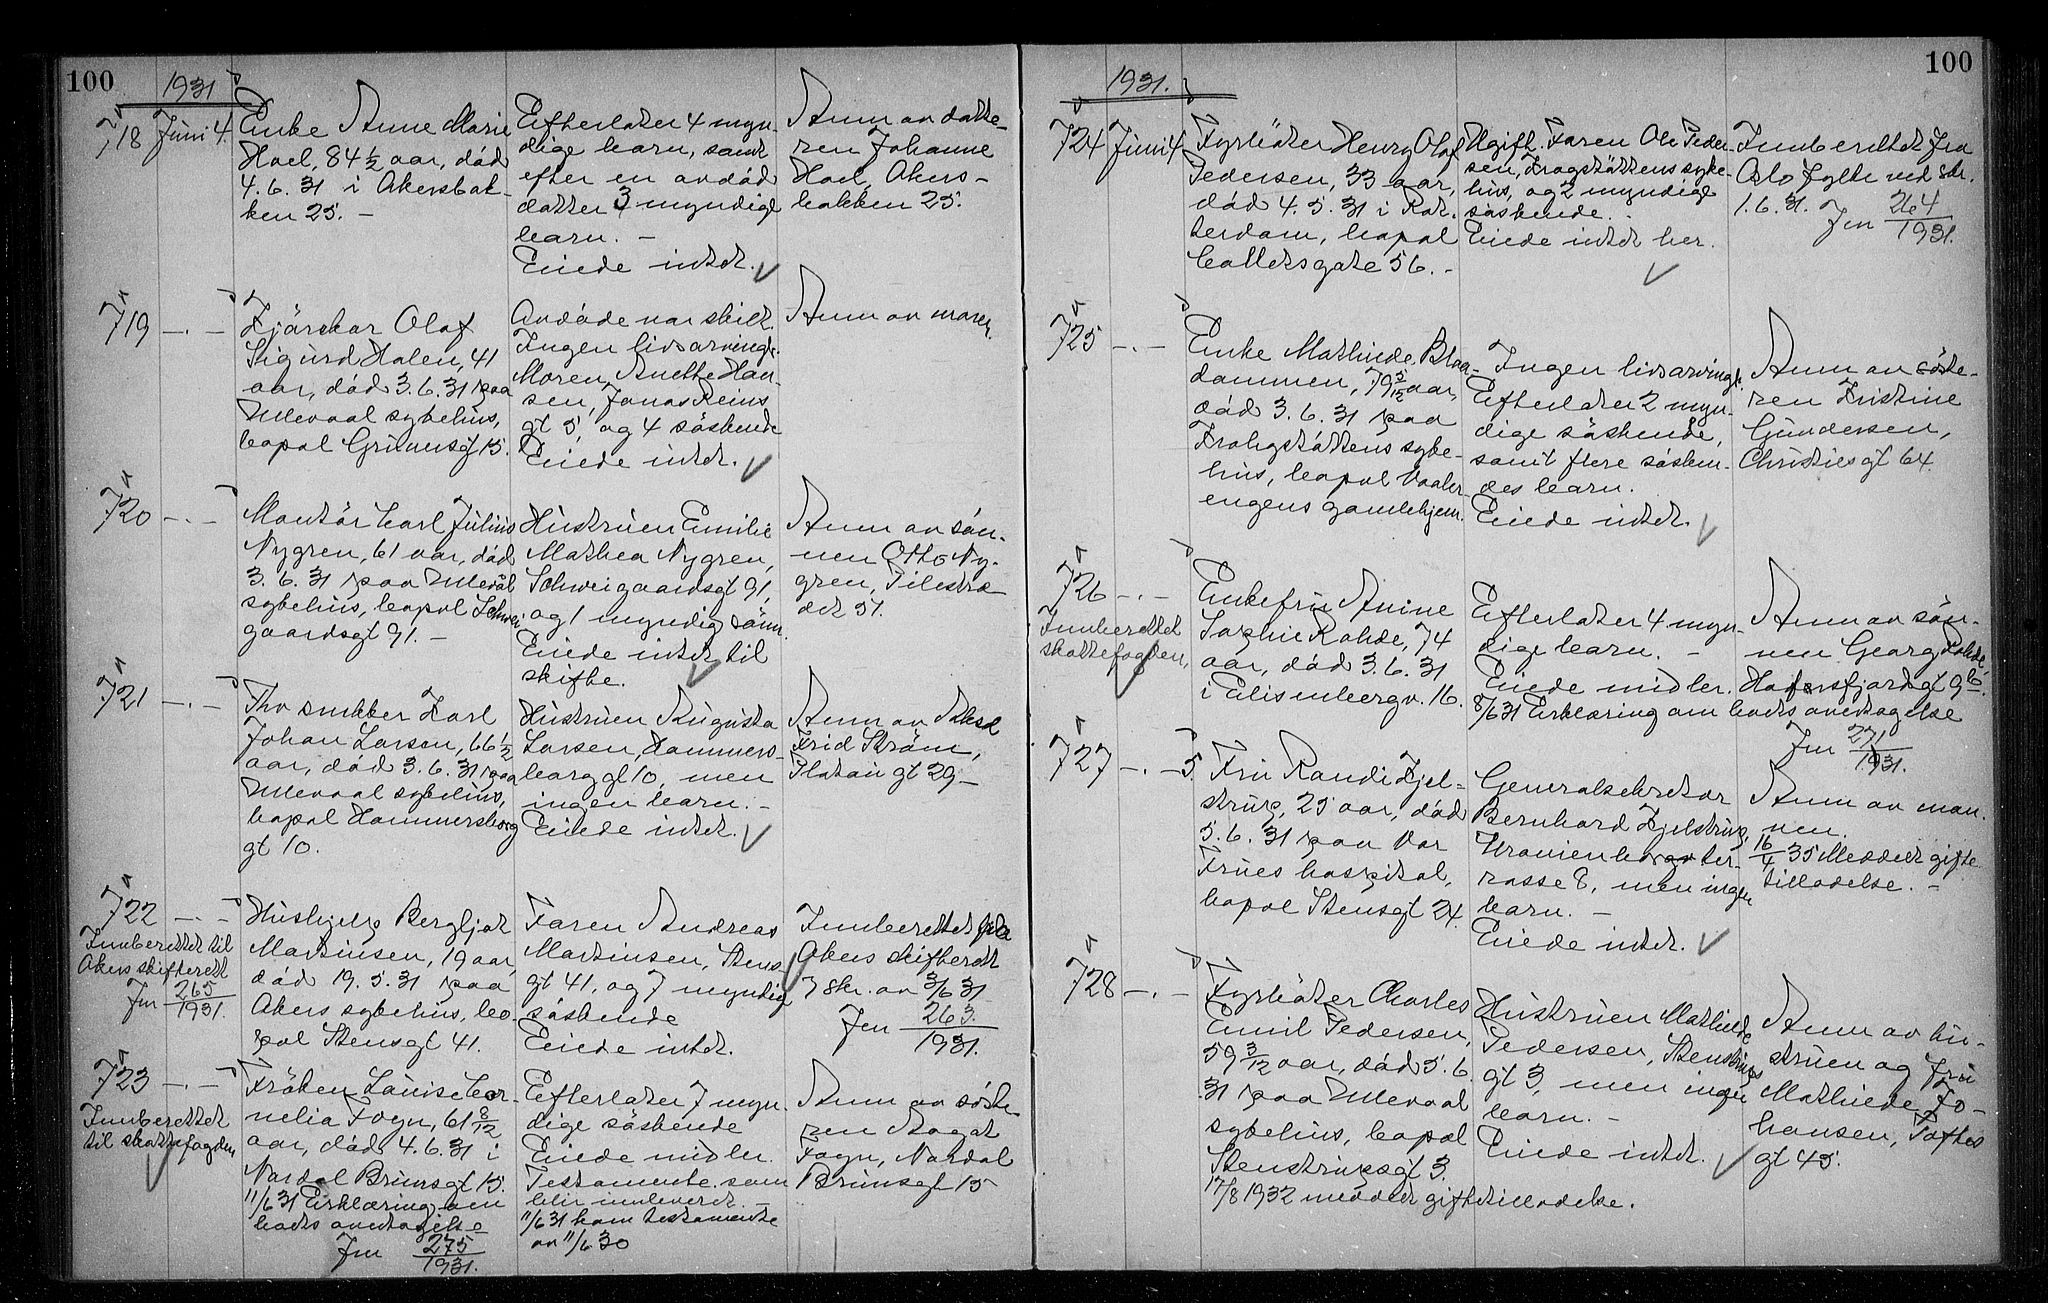 100
1931
718 Juni 4.
Enke Anne Marie
Hoel, 84 1/2 aar, död
4.6.31 i Akersbak-
ken 25. -
Efterlater 4 myn-
dige barn, samt
efter en avdöd
datter 3 myndige
barn. -
Eiede intet.
Anm av datte-
ren Johanne
Hoel, Akers-
bakken 25.
719 -.-
Olaf
Sigurd Halen, 41
aar, död 3.6.31 paa
Ullevaal sykehus,
bopal Grünersgt 15.
Avdöde var skilt.
Ingen livsarving.
Moren, Anette Han-
sen, Jonas Reins
gt 5, og 4 söskende
Eiede intet.
Anm av moren.
720 -.-
Montör Carl Julius
Nygren, 61 aar, död
3.6.31 paa Ullevål
sykehus, bopal Schwei-
gaardsgt 91. -
Hustruen Emilie
Mathea Nygren,
Schweigaardsgt 91,
og 1 myndig sönn.
Eiede intet til
skifte.
Anm av sön-
nen Otto Ny-
gren, Pilestræ-
det 51.
721 -.-
Fhv snekker Karl
Johan Larsen, 66 1/2
aar, död 3.6.31 paa
Ullevaal sykehus,
bopal Hammersborg
gt 10.
Hustruen Augusta
Larsen, Hammers-
borg gt 10, men
ingen barn. -
Eiede intet.
Anm av Aksel
Frid Ström,
Platou gt 29 -
722 -.-
Innberettet til
Aker skifterett
Jnr 265/1931.
Hushjelp Bergljot
Martinsen, 19 aar,
död 19.5.31 paa
Akers sykehus, bo-
pal Stensgt 41.
Faren Andreas
Martinsen, Stens
gt 41, og 7 myndig
söskende
Eiede intet.
Innberettet fra
Akers skifterett
i skr. av 3/6 31
Jnr 263/1931.
723 -.-
Innberettet
til skattefogden
Fröken Louise Cor-
nelia Fogn, 61 8/12
aar, död 4.6.31 i
Nordal Brunsgt 15.
11/6 31 Erklæring om
boets overtagelse
Jnr 275/1931.
Efterlater 7 myn-
dige söskende
Eiede midler.
Testamente som
blir innleveret. -
11/6 31 kom testamente
av 11/6 30
Anm av söste-
ren Aagot
Fogn, Nordal
Brunsgt 15
100
1931.
724 Juni 4
Fyrböter Henry Olaf
Pedersen, 33 aar,
död 4.5.31 i Rot-
terdam, bopal
Colletsgate 56. -
Ugift. Faren Ole Peder-
sen, Krogstöttens syke-
hus, og 2 myndige
söskende. -
Eiede intet her.
Innberettet fra
Oslo fylke ved skr.
1.6.31. Jnr 264/1931.
725 -.-
Enke Mathilde Blaa-
dammen, 79 5/12 aar,
död 3.6.31 paa
Krohgstöttens syke-
hus, bopal Vaaler-
engens gamlehjem.
Ingen livsarving.
Efterlater 2 myn-
dige söskende,
samt flere sösken-
des barn.
Eiede intet.
Anm av söste-
ren Kristine
Gundersen,
Christiesgt 64.
726 -.-
Innberettet
skattefogden,
Enkefru Anine
Sophie Rohde, 74
aar, död 3.6.31
i Eilisenbergv. 16.
Efterlater 4 myn-
dige barn. -
Eiede midler.
8/6 31 Erklæring om boets overtagelse
Jnr 271/1931.
Anm av sön-
nen Georg Rohde
Hafrsfjordgt 9 b.
727 -.- 5.
Fru Randi Kjel-
strup, 25 aar, död
5.6.31 paa Vor
Frues hospital,
bopal Stensgt 24.
Generalsekretær
Bernhard Kjelstrup,
Uranienborg ter-
rasse 8, men ingen
barn. -
Eiede intet.
Anm av man-
nen.
16/4 35 Meddelt gifte-
tilladelse. -
728 -.-
Fyrböter Charles
Emil Pedersen,
59 3/12 aar, död 5.6.
31 paa Ullevaal
sykehus, bopal
Stenstrupsgt 3.
17/8 1932 meddelt giftetilladelse.
Hustruen Mathilde
Pedersen, Stenstrups
gt 3, men ingen
barn. -
Eiede intet.
Anm av hu-
struen og fru
Mathilde Jo-
hansen, Toftes
gt 45.